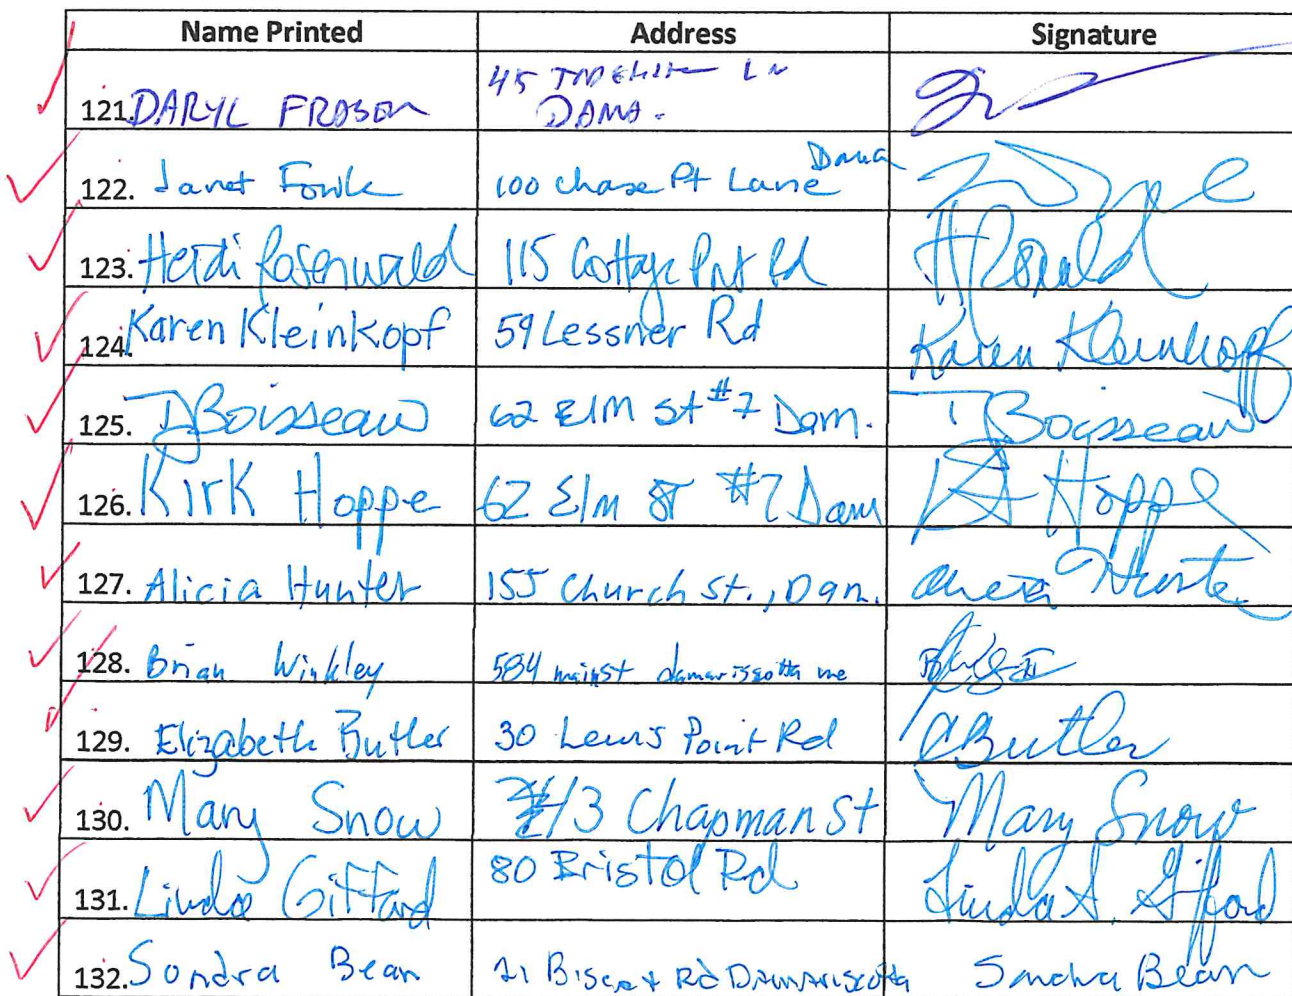 Name Printed Address Signature
121. DARYL FRASER 45 LN
DAMA.
122. Janet Fowle 100 Chase Pt Lane Dama
123. Heidi Rosenwald 115 Cottage Pnt Rd
124. Karen Kleinkopf 59 Lessner Rd Karen Kleinkopf
125. J Boisseau 62 Elm St #7 Dam. J Boisseau
126. Kirk Hoppe 62 Elm ST #7 Dam K Hoppe
127. Alicia Hunter 155 Church St., Dam. Alicia Hunter
128. Brian Winkley 584 main st damariscotta me
129. Elizabeth Butler 30 Lewis Point Rd EButler
130. Mary Snow #13 Chapman St Mary Snow
131. Linda Gifford 80 Bristol Rd Linda A. Gifford
132. Sondra Bean 21 Biscay Rd DAMARiscotta Sondra Bean